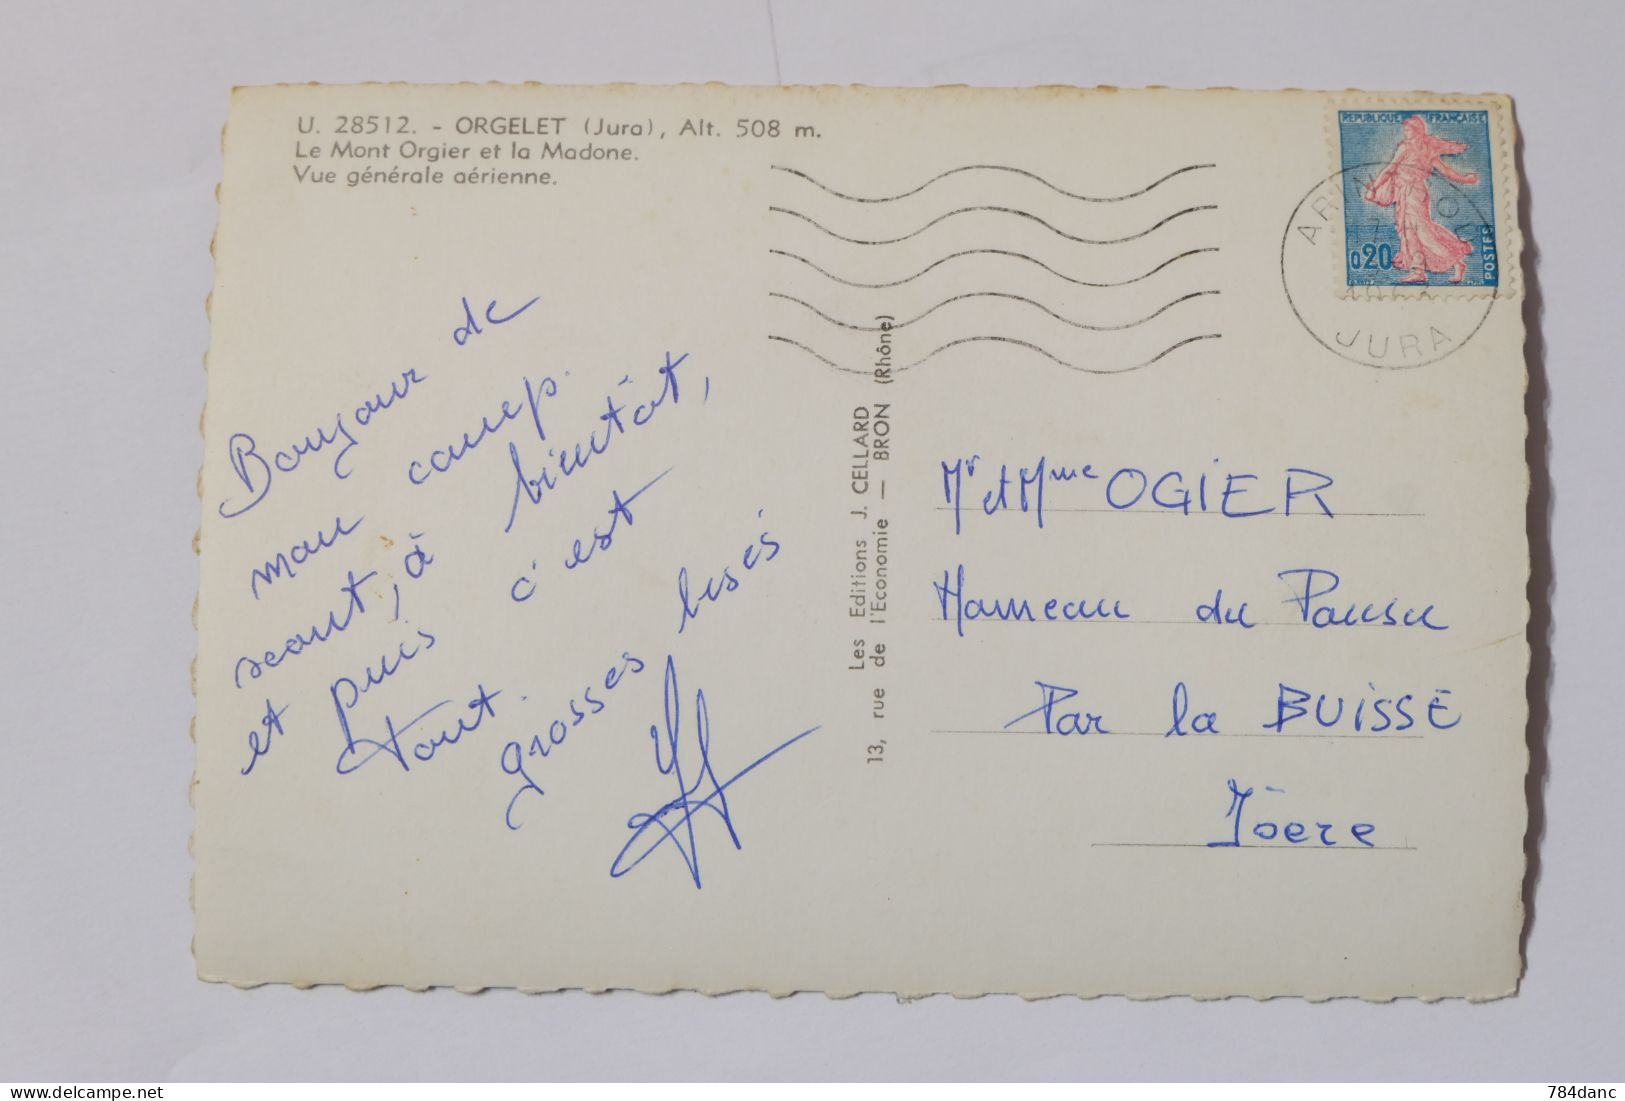 U. 28512. - ORGELET (Jura), Alt. 508 m.
Le Mont Orgier et la Madone.
Vue générale aérienne.
Bonjour de
mon camp.
scout, à bientôt,
et puis c'est
tout.
grosses bises
Les Editions J. CELLARD
13, rue de l'Economie — BRON (Rhône)
REPUBLIQUE FRANÇAISE
0,20
POSTES
JURA
Mr et Mme OGIER
Hameau du
Par la BUISSE
Isère
delcampe.net
784danc